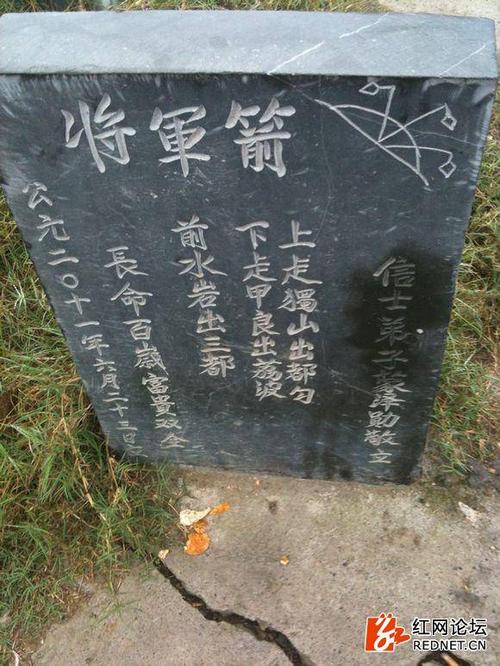 将軍箭
信士弟子蒙勋敬立
上走獨山出都匀
下走甲良出荔波
前水岩出三都
長命百歲富貴双全
公元二〇十一年六月二十三日
红网论坛
REDNET.CN